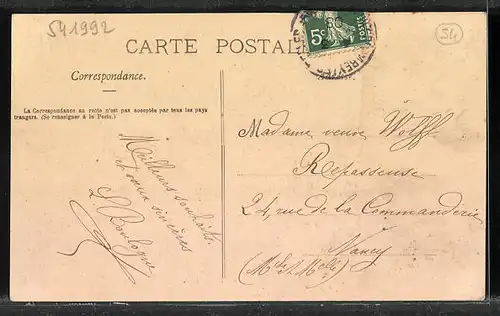 541992
54
CARTE POSTALE
5c
POSTES
Correspondance.
La Correspondance au recto n'est pas acceptée par tous les pays
trangers. (Se renseigner à la Poste.)
Meilleurs souhaits
et vœux sincères
L. Boulogne
Madame veuve Wolff
Repasseuse
24, rue de la Commanderie
Nancy
(Mthe & Mlle)